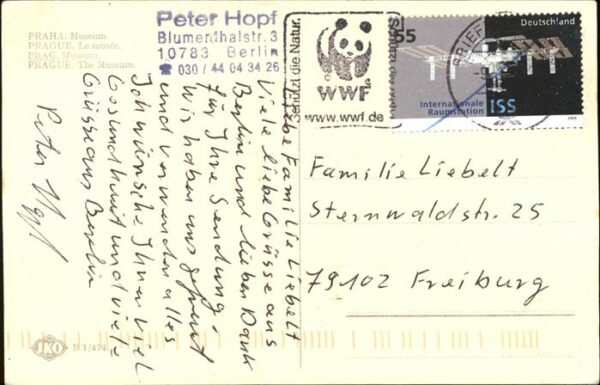 PRAHA. Museum.
PRAGUE. Le musée.
PRAG. Museum.
PRAGUE. The Museum.
Peter Hopf
Blumenthalstr. 3
10783 Berlin
☎ 030 / 44 04 34 26
Schützt die Natur.
WWF®
www.wwf.de
BRIEF
55
Deutschland
Internationale
Raumstation
ISS
2004
Liebe Familie Liebelt
Viele liebe Grüsse aus
Berlin und lieben Dank
für Ihre Sendung.
Wir haben uns gefreut
und verwenden alles
Ich wünsche Ihnen viel
Gesundheit und viele
Grüsse aus Berlin
Peter Hopf
Familie Liebelt
Sternwaldstr. 25
79102 Freiburg
B 1/474